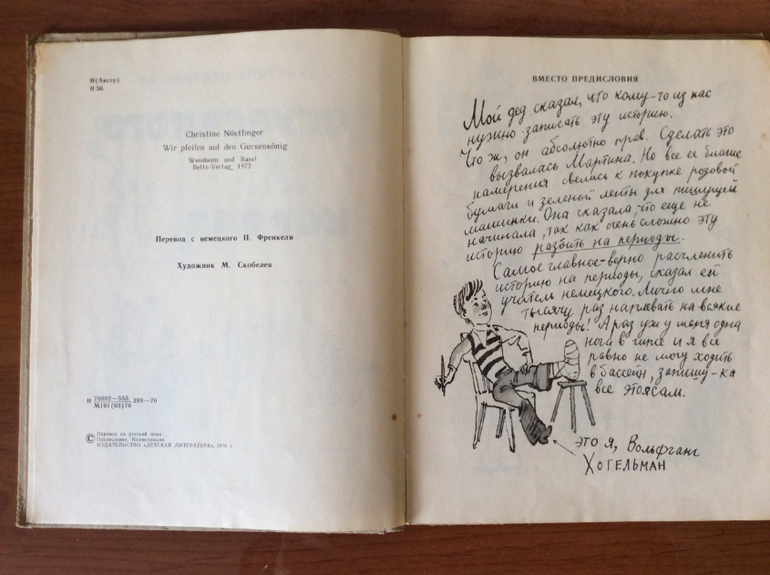 И(Австр)
Н 56
Christine Nöstlinger
Wir pfeifen auf den Gurkenkönig
Weinheim und Basel
Beltz-Verlag, 1972
Перевод с немецкого П. Френкеля
Художник М. Скобелев
Н 70802—555 399—76
М101(03)76
© Перевод на русский язык.
Послесловие. Иллюстрации.
ИЗДАТЕЛЬСТВО «ДЕТСКАЯ ЛИТЕРАТУРА», 1976 г.
ВМЕСТО ПРЕДИСЛОВИЯ
Мой дед сказал, что кому-то из нас
нужно записать эту историю.
Что ж, он абсолютно прав. Сделать это
вызвалась Мартина. Но все ее благие
намерения свелись к покупке розовой
бумаги и зеленой ленты для пишущей
машинки. Она сказала, что еще не
начинала, так как очень сложно эту
историю разбить на периоды.
Самое главное-верно расчленить
историю на периоды, сказал ей
учитель немецкого. Лично мне
тысячу раз наплевать на всякие
периоды! А раз уж у меня одна
нога в гипсе и я все
равно не могу ходить
в бассейн, запишу-ка
все это я сам.
это я, Вольфганг
Хогельман